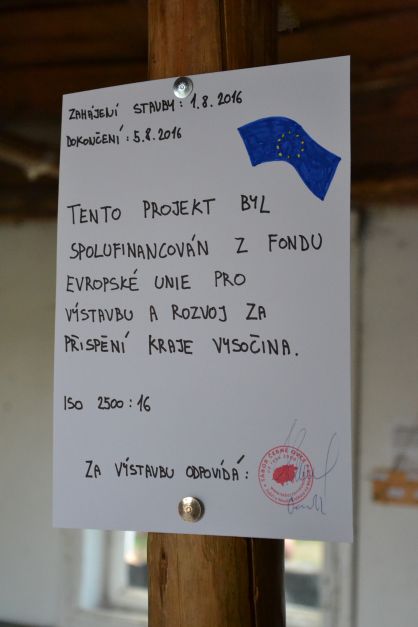 ZAHÁJENÍ STAVBY: 1.8.2016
DOKONČENÍ: 5.8.2016
TENTO PROJEKT BYL
SPOLUFINANCOVÁN Z FONDU
EVROPSKÉ UNIE PRO
VÝSTAVBU A ROZVOJ ZA
PŘISPĚNÍ KRAJE VYSOČINA.
ISO 2500:16
ZA VÝSTAVBU ODPOVÍDÁ:
TÁBOR ČERNÉ OVCE